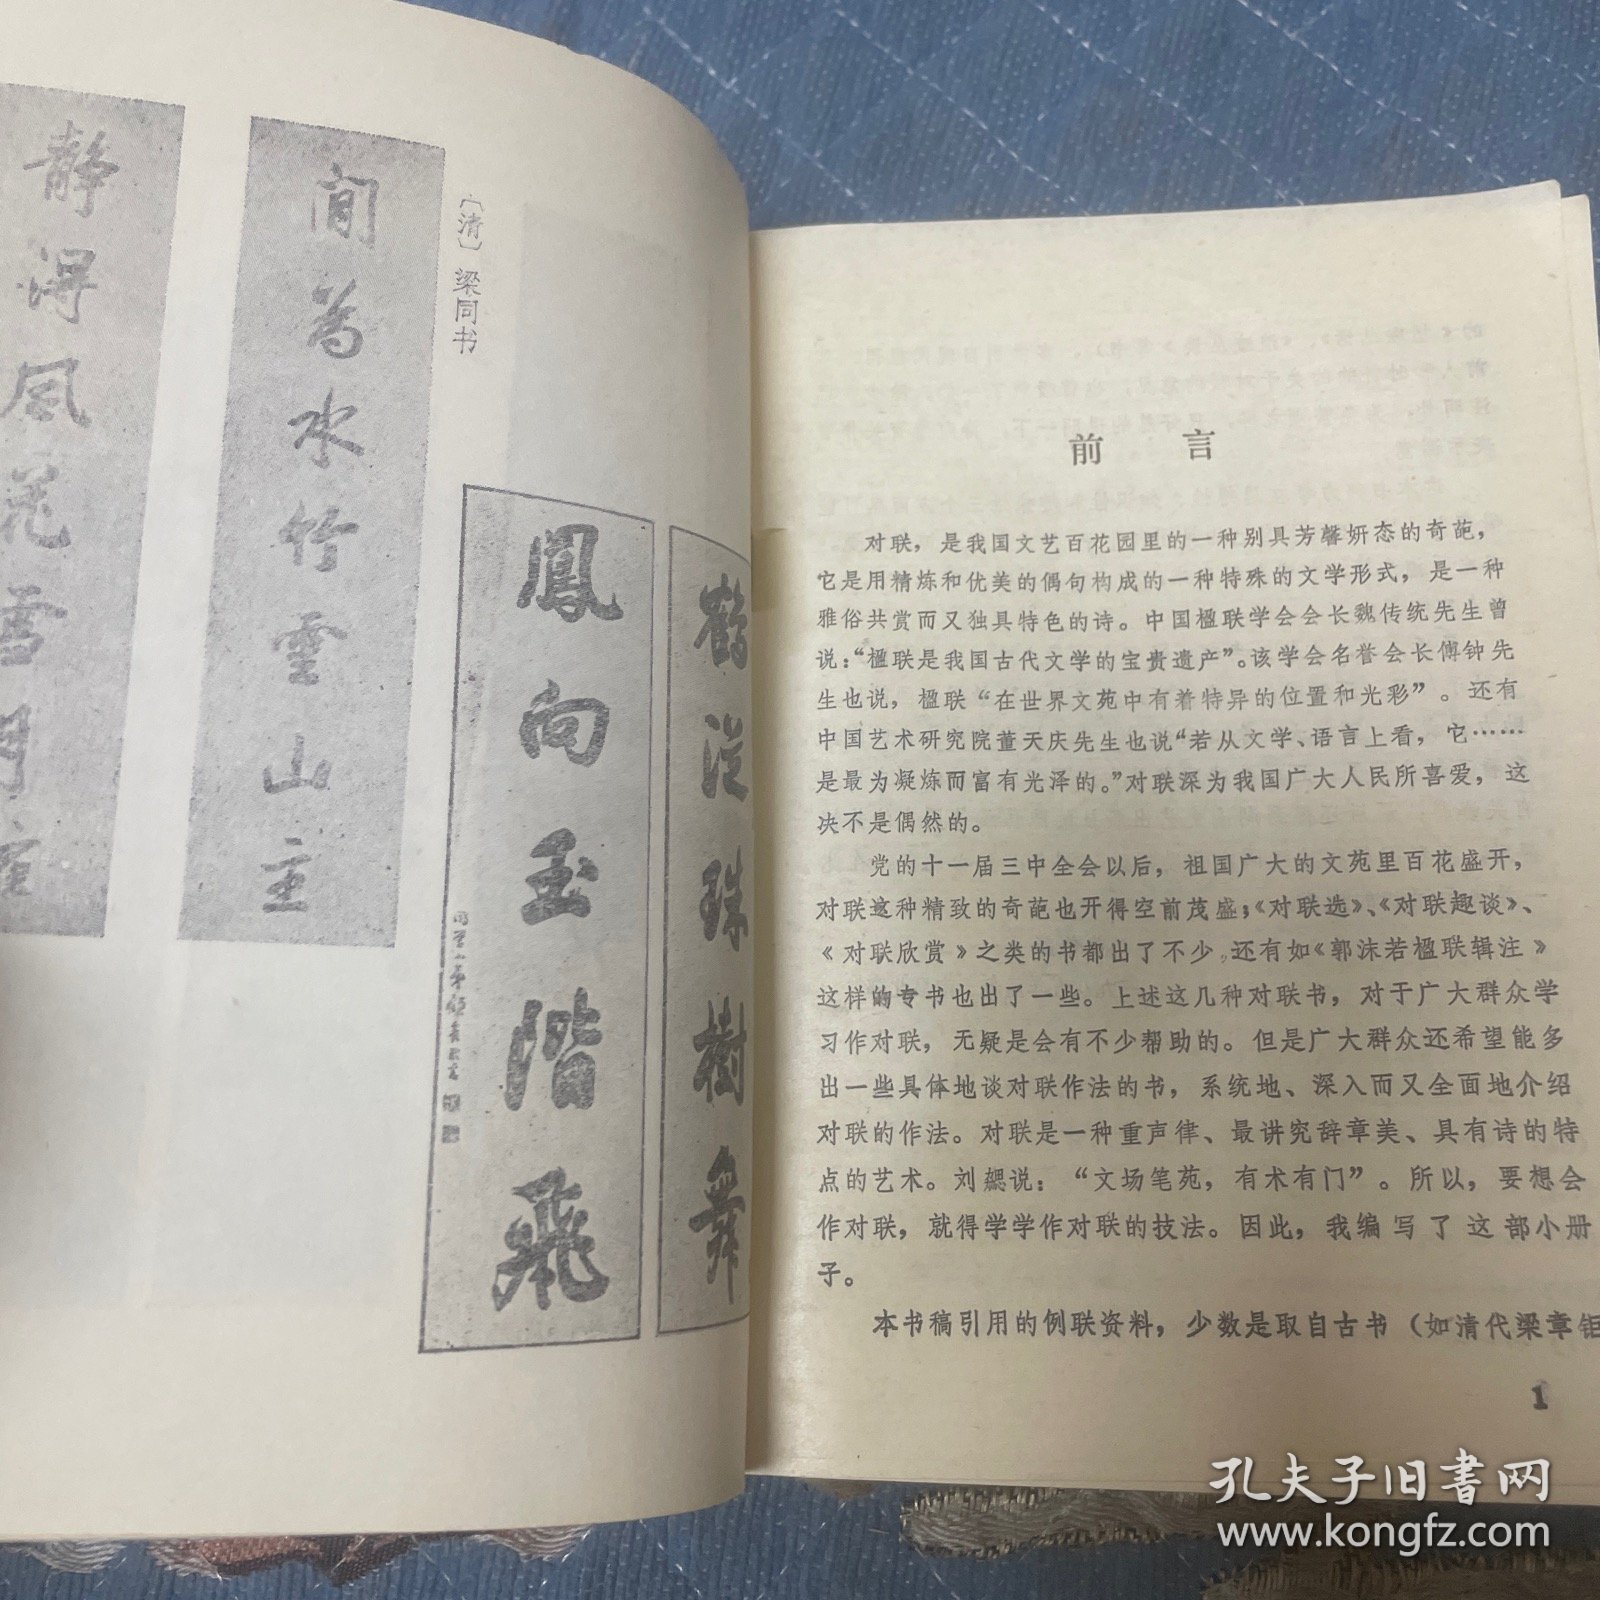 静得风花雪月宜
间为水竹云山主
〔清〕梁同书
鹤从珠树舞
凤向玉阶飞
前 言
对联，是我国文艺百花园里的一种别具芳馨妍态的奇葩，
它是用精炼和优美的偶句构成的一种特殊的文学形式，是一种
雅俗共赏而又独具特色的诗。中国楹联学会会长魏传统先生曾
说：“楹联是我国古代文学的宝贵遗产”。该学会名誉会长傅钟先
生也说，楹联“在世界文苑中有着特异的位置和光彩”。还有
中国艺术研究院董天庆先生也说“若从文学、语言上看，它……
是最为凝炼而富有光泽的。”对联深为我国广大人民所喜爱，这
决不是偶然的。
党的十一届三中全会以后，祖国广大的文苑里百花盛开，
对联这种精致的奇葩也开得空前茂盛；《对联选》、《对联趣谈》、
《对联欣赏》之类的书都出了不少，还有如《郭沫若楹联辑注》
这样的专书也出了一些。上述这几种对联书，对于广大群众学
习作对联，无疑是会有不少帮助的。但是广大群众还希望能多
出一些具体地谈对联作法的书，系统地、深入而又全面地介绍
对联的作法。对联是一种重声律、最讲究辞章美、具有诗的特
点的艺术。刘勰说：“文场笔苑，有术有门”。所以，要想会
作对联，就得学学作对联的技法。因此，我编写了这部小册
子。
本书稿引用的例联资料，少数是取自古书（如清代梁章钜
1
孔夫子旧书网
www.kongfz.com